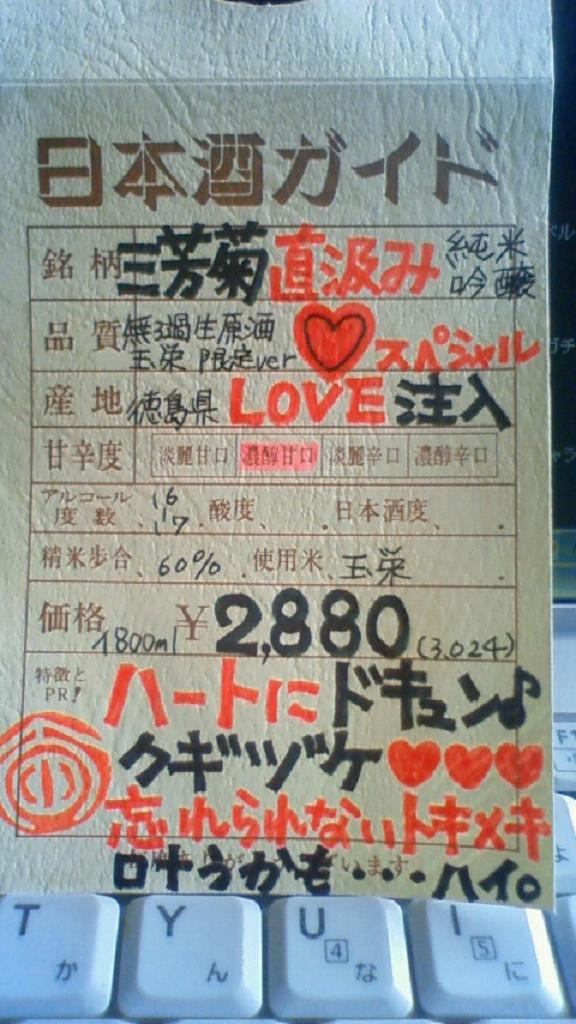 日本酒ガイド
銘柄 三芳菊 直汲み 純米吟醸
品質 無ろ過生原酒 玉栄 限定ver スペシャル
産地 徳島県 LOVE 注入
甘辛度 淡麗甘口 濃醇甘口 淡麗辛口 濃醇辛口
アルコール度数、16 17. 酸度、. 日本酒度、.
精米歩合、60% . 使用米、玉栄 .
価格 1800ml ¥2,880 (3.024)
特徴とPR! ハートにドキュン♪
クギヅケ ♥♥♥
忘れられないトキメキ
ロナうかも・・・ハイ。
T か Y ん U 4 な I 5 に